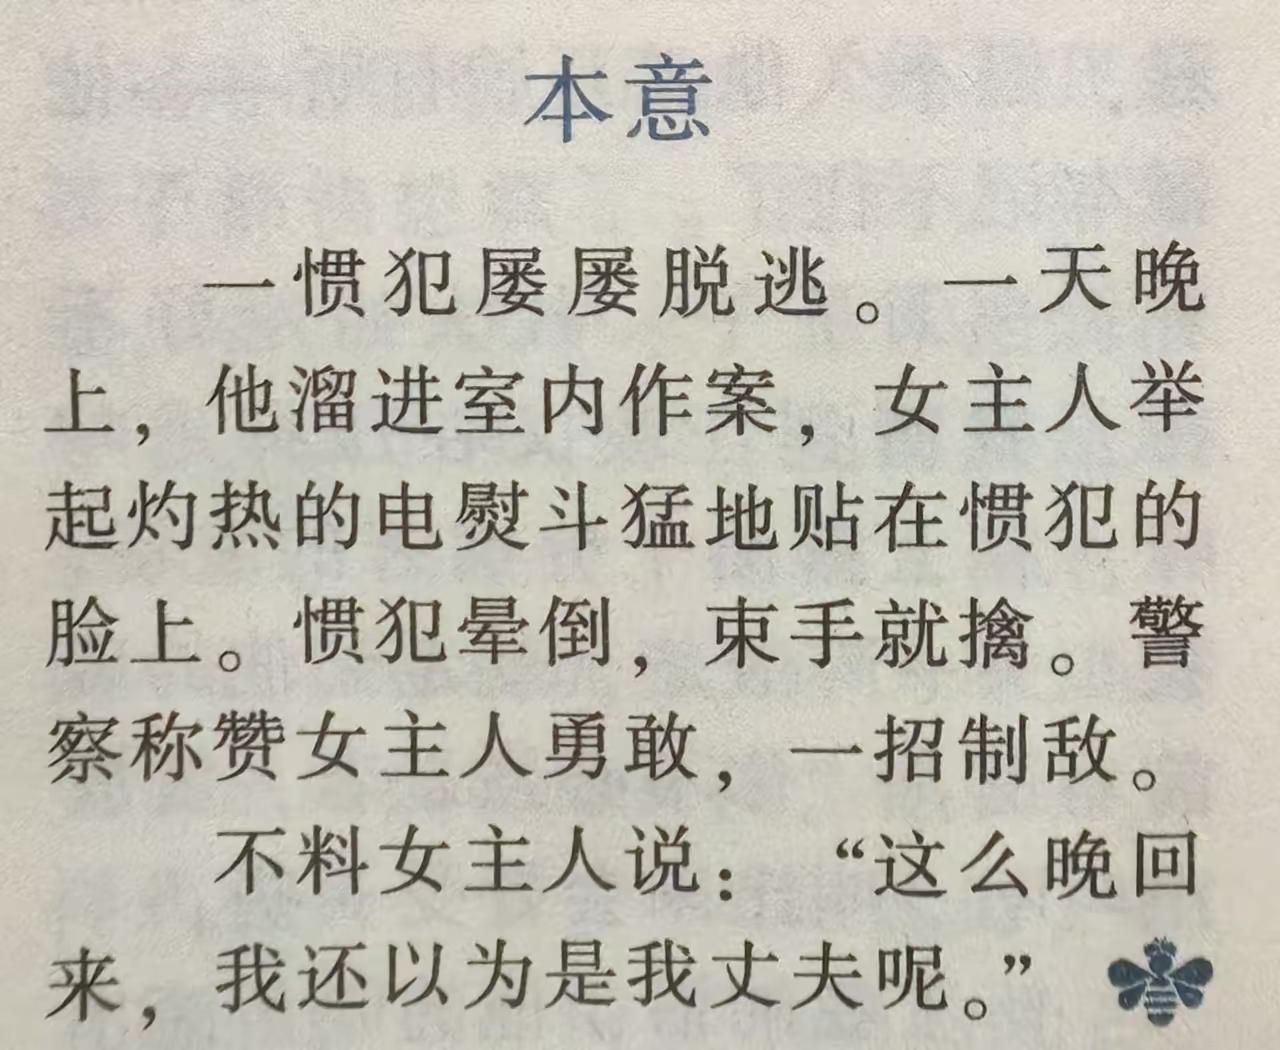 本意
一惯犯屡屡脱逃。一天晚
上，他溜进室内作案，女主人举
起灼热的电熨斗猛地贴在惯犯的
脸上。惯犯晕倒，束手就擒。警
察称赞女主人勇敢，一招制敌。
不料女主人说：“这么晚回
来，我还以为是我丈夫呢。”